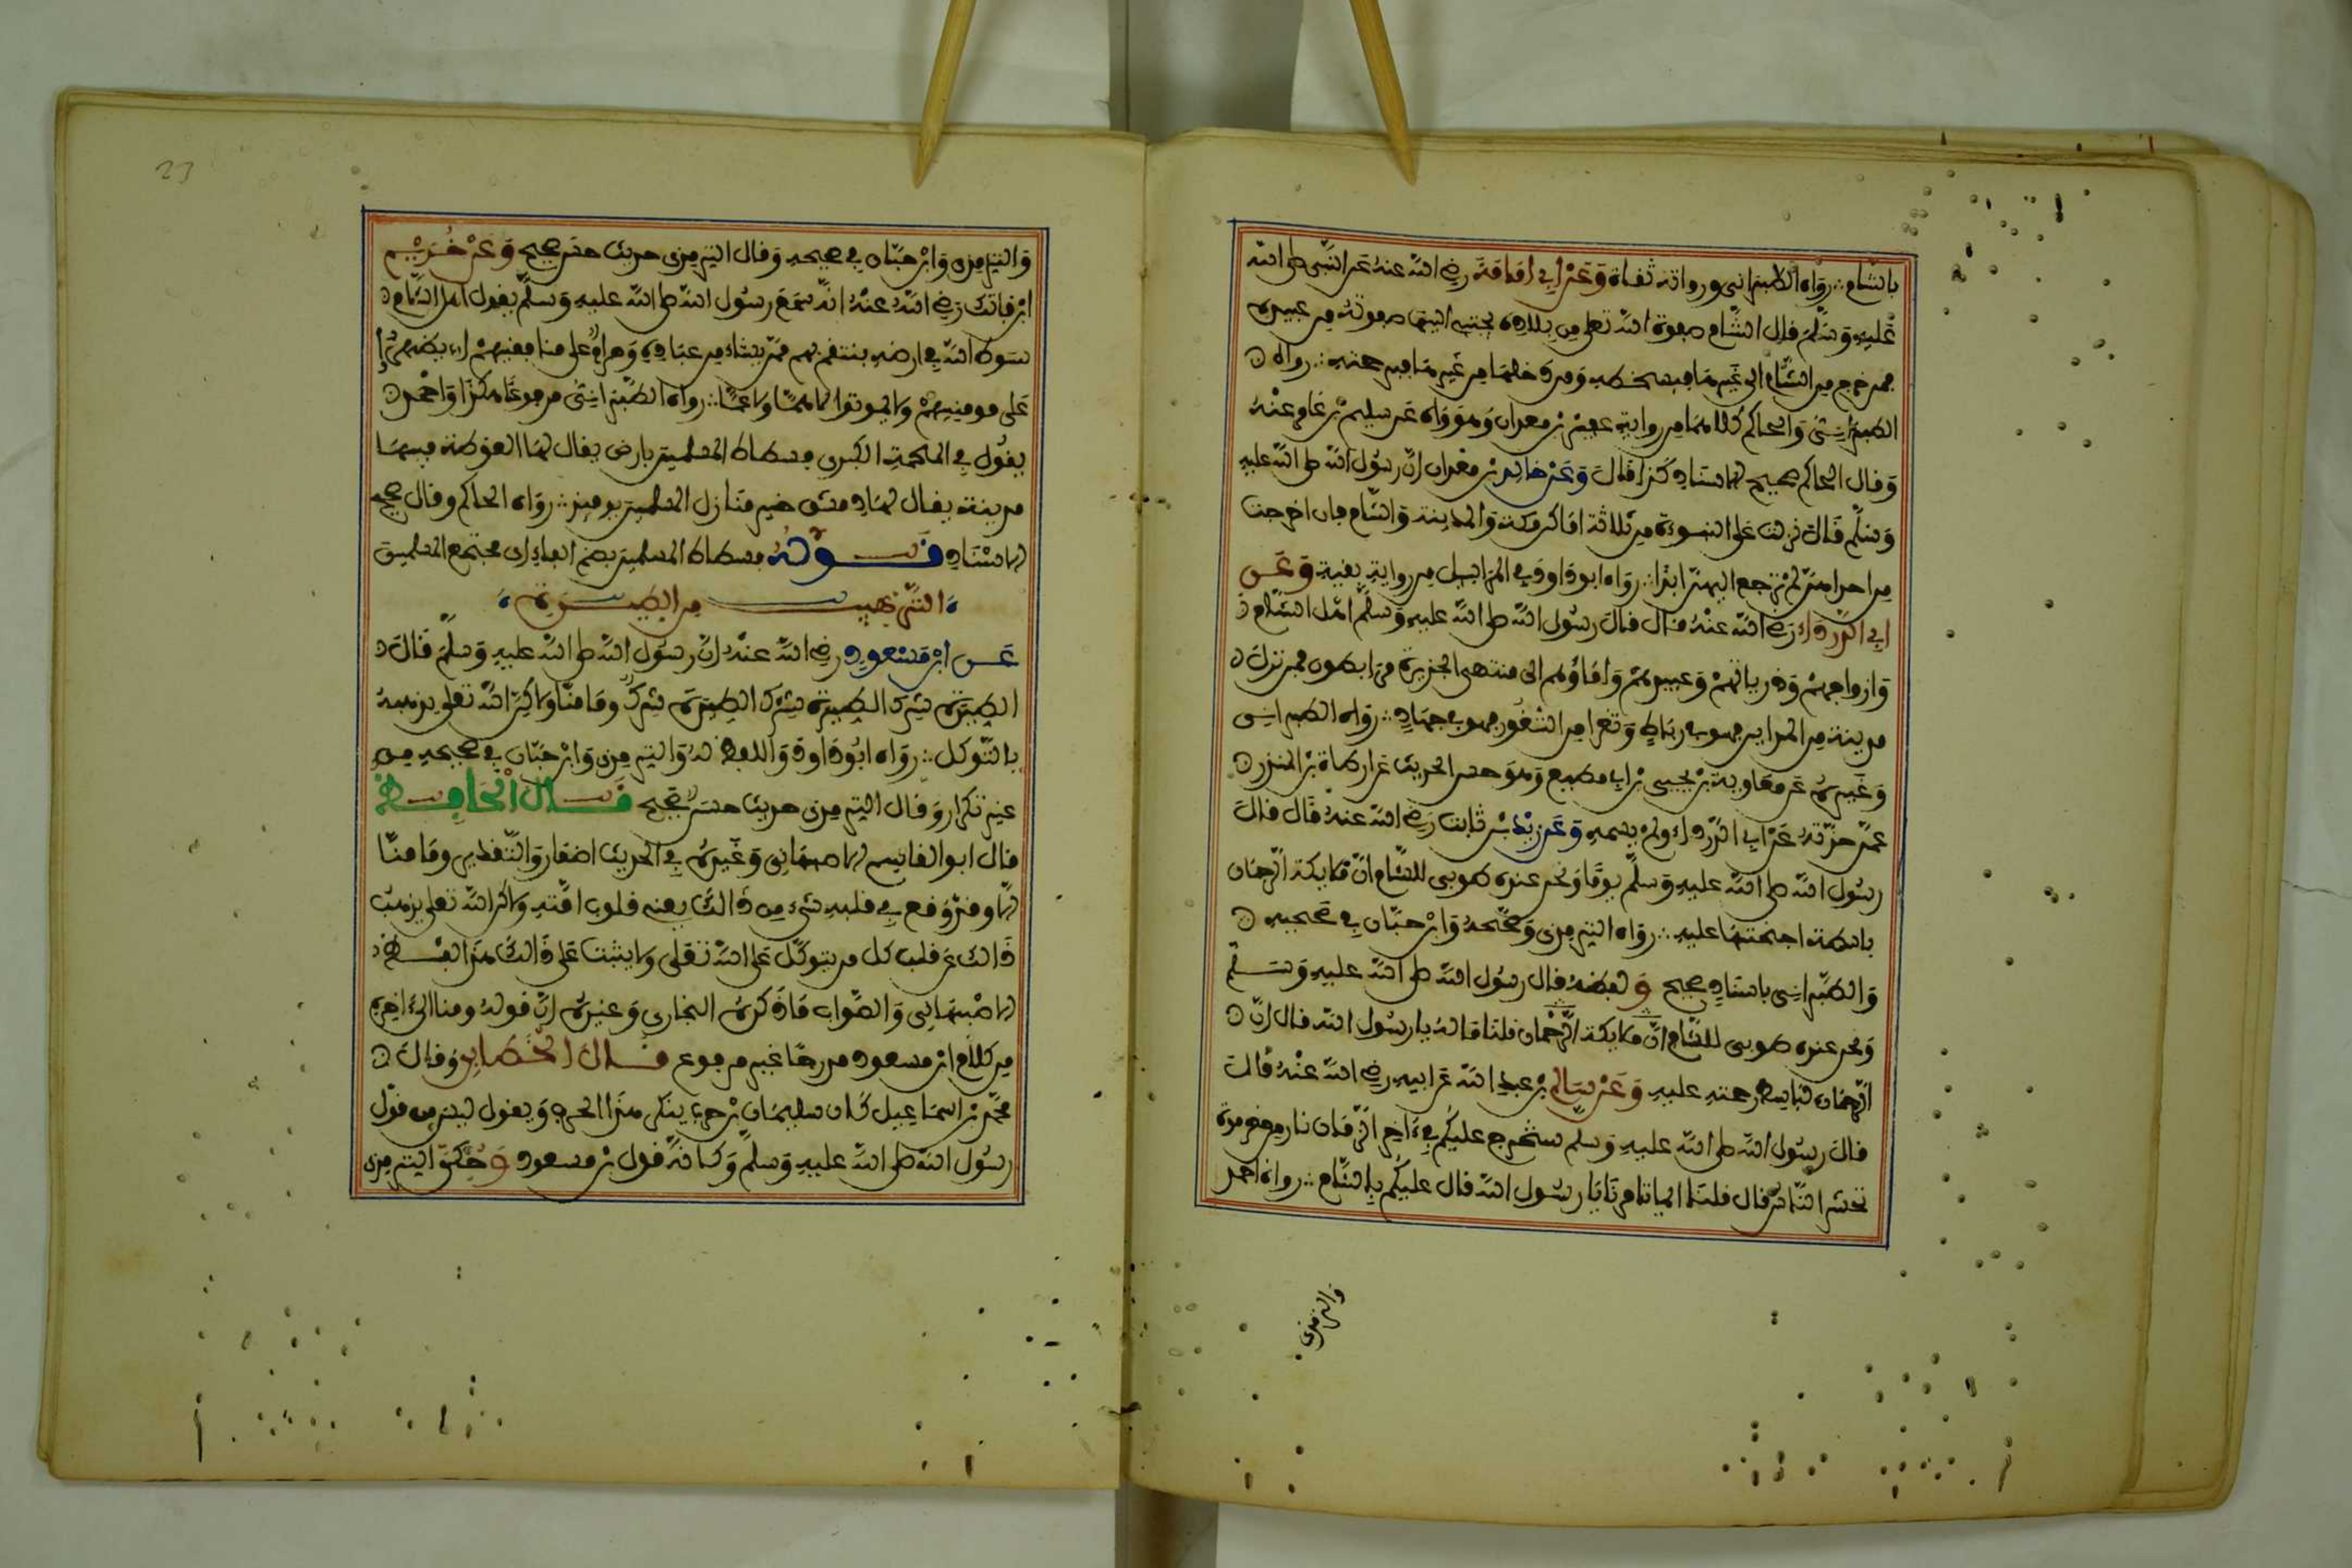 بالشام ∴ رواه الطبراني ورواته ثقاة وَعَنْ أبِي أمَامَةَ رضي الله عنه عن النبي صلى الله
عليه وسلم قال الشام صفوة الله تعلى من بلاده يجتبي اليها صفوته من عبيده
فمن خرج من الشام الى غيرها فبسخطه ومن دخلها من غيرها فبرحمته ∴ رواه
الطبراني والحاكم كلاهما من رواية عفير بن معدان وهو واه عن سليم بن عامر عنه
وقال الحاكم صحيح الاسناد كذا قال وَعَنْ خالِد بن معدان ان رسول الله صلى الله عليه
وسلم قال نزلت على النبوءة من ثلاثة اماكن مكة والمدينة والشام فان اخرجت
من احداهن لم ترجع اليهن ابدا ∴ رواه ابو داوود في المراسيل من رواية بقية وَعَن
أبِي الدرداء رضي الله عنه قال قال رسول الله صلى الله عليه وسلم اهل الشام
وازواجهم وذرياتهم وعبيدهم واماؤهم الى منتهى الجزيرة مرابطون فمن نزل
مدينة من المداين فهو في رباط وثغرا من الثغور فهو في جهاد ∴ رواه الطبراني
وغيره عن معاوية بن يحيى بن ابي مطيع وهو حسن الحديث عن ارطاة بن المنذر
عمن حدثه عن ابي الدرداء ولم يسمه وَعَن زيْد بن ثابت رضي الله عنه قال قال
رسول الله صلى الله عليه وسلم يوما ونحن عنده طوبى للشام ان ملايكة الرحمان
باسطة اجنحتها عليه ∴ رواه الترمذي وصححه وابن حبان في صحيحه
والطبراني باسناد صحيح وَلفظه قال رسول الله صلى الله عليه وسلم
ونحن عنده طوبى للشام ان ملايكة الرحمان قلنا ماله يا رسول الله قال ان
الرحمان لباسط رحمته عليه وَعَنْ سَالم بن عبد الله عن ابيه رضي الله عنه قال
قال رسول الله صلى الله عليه وسلم ستخرج عليكم في ءاخر الزمان نار من حضرموت
تحشر الناس قال قلنا بما تامرنا يا رسول الله قال عليكم بالشام ∴ رواه احمد
والترمذي
23
والترمذي وابن حبان في صحيحه وقال الترمذي حديث حسن صحيح وَعَنْ خُرَيْم
ابن فاتك رضي الله عنه انه سمع رسول الله صلى الله عليه وسلم يقول اهل الشام
سوط الله في ارضه ينتقم بهم ممن يشاء من عباده وحرام على منافقيهم ان يظهروا
على مومنيهم ولا يموتوا الا هما وغما ∴ رواه الطبراني مرفوعا هكذا واحمد
يقول في الملحمة الكبرى فسطاط المسلمين بارض يقال لها الغوطة فيها
مدينة يقال لها دمشق خير منازل المسلمين يومئذ ∴ رواه الحاكم وقال صحيح
الاسناد قَوْلُهُ فسطاط المسلمين بضم الفاء اي مجتمع المسلمين
التَّرهِيب مِن الطِيَرَةِ
عَن ابْن مَسْعود رضي الله عنه ان رسول الله صلى الله عليه وسلم قال
الطيرة شرك الطيرة شرك الطيرة شرك وما منا ولكن الله تعلى يذهبه
بالتوكل ∴ رواه ابو داوود واللفظ له والترمذي وابن حبان في صحيحه من
غير تكرار وقال الترمذي حديث حسن صحيح قَال الحَافِظ
قال ابو القاسم الاصبهاني وغيره في الحديث اضمار والتقدير وما منا
الا وقد وقع في قلبه شيء من ذالك يعني قلوب امته ولاكن الله تعلى يذهب
ذالك عن قلب كل من يتوكل على الله تعلى ولا يثبت على ذالك هذا لفظ
الاصبهاني والصواب ما ذكره البخاري وغيره ان قوله وما منا الى ءاخره
من كلام ابن مسعود مدرجا غير مرفوع قَال الخَطابِي وقال
محمد بن اسماعيل كان سليمان بن حرب ينكر هذا الحرف ويقول ليس من قول
رسول الله صلى الله عليه وسلم وكانه قول بن مسعود وَحكى الترمذي